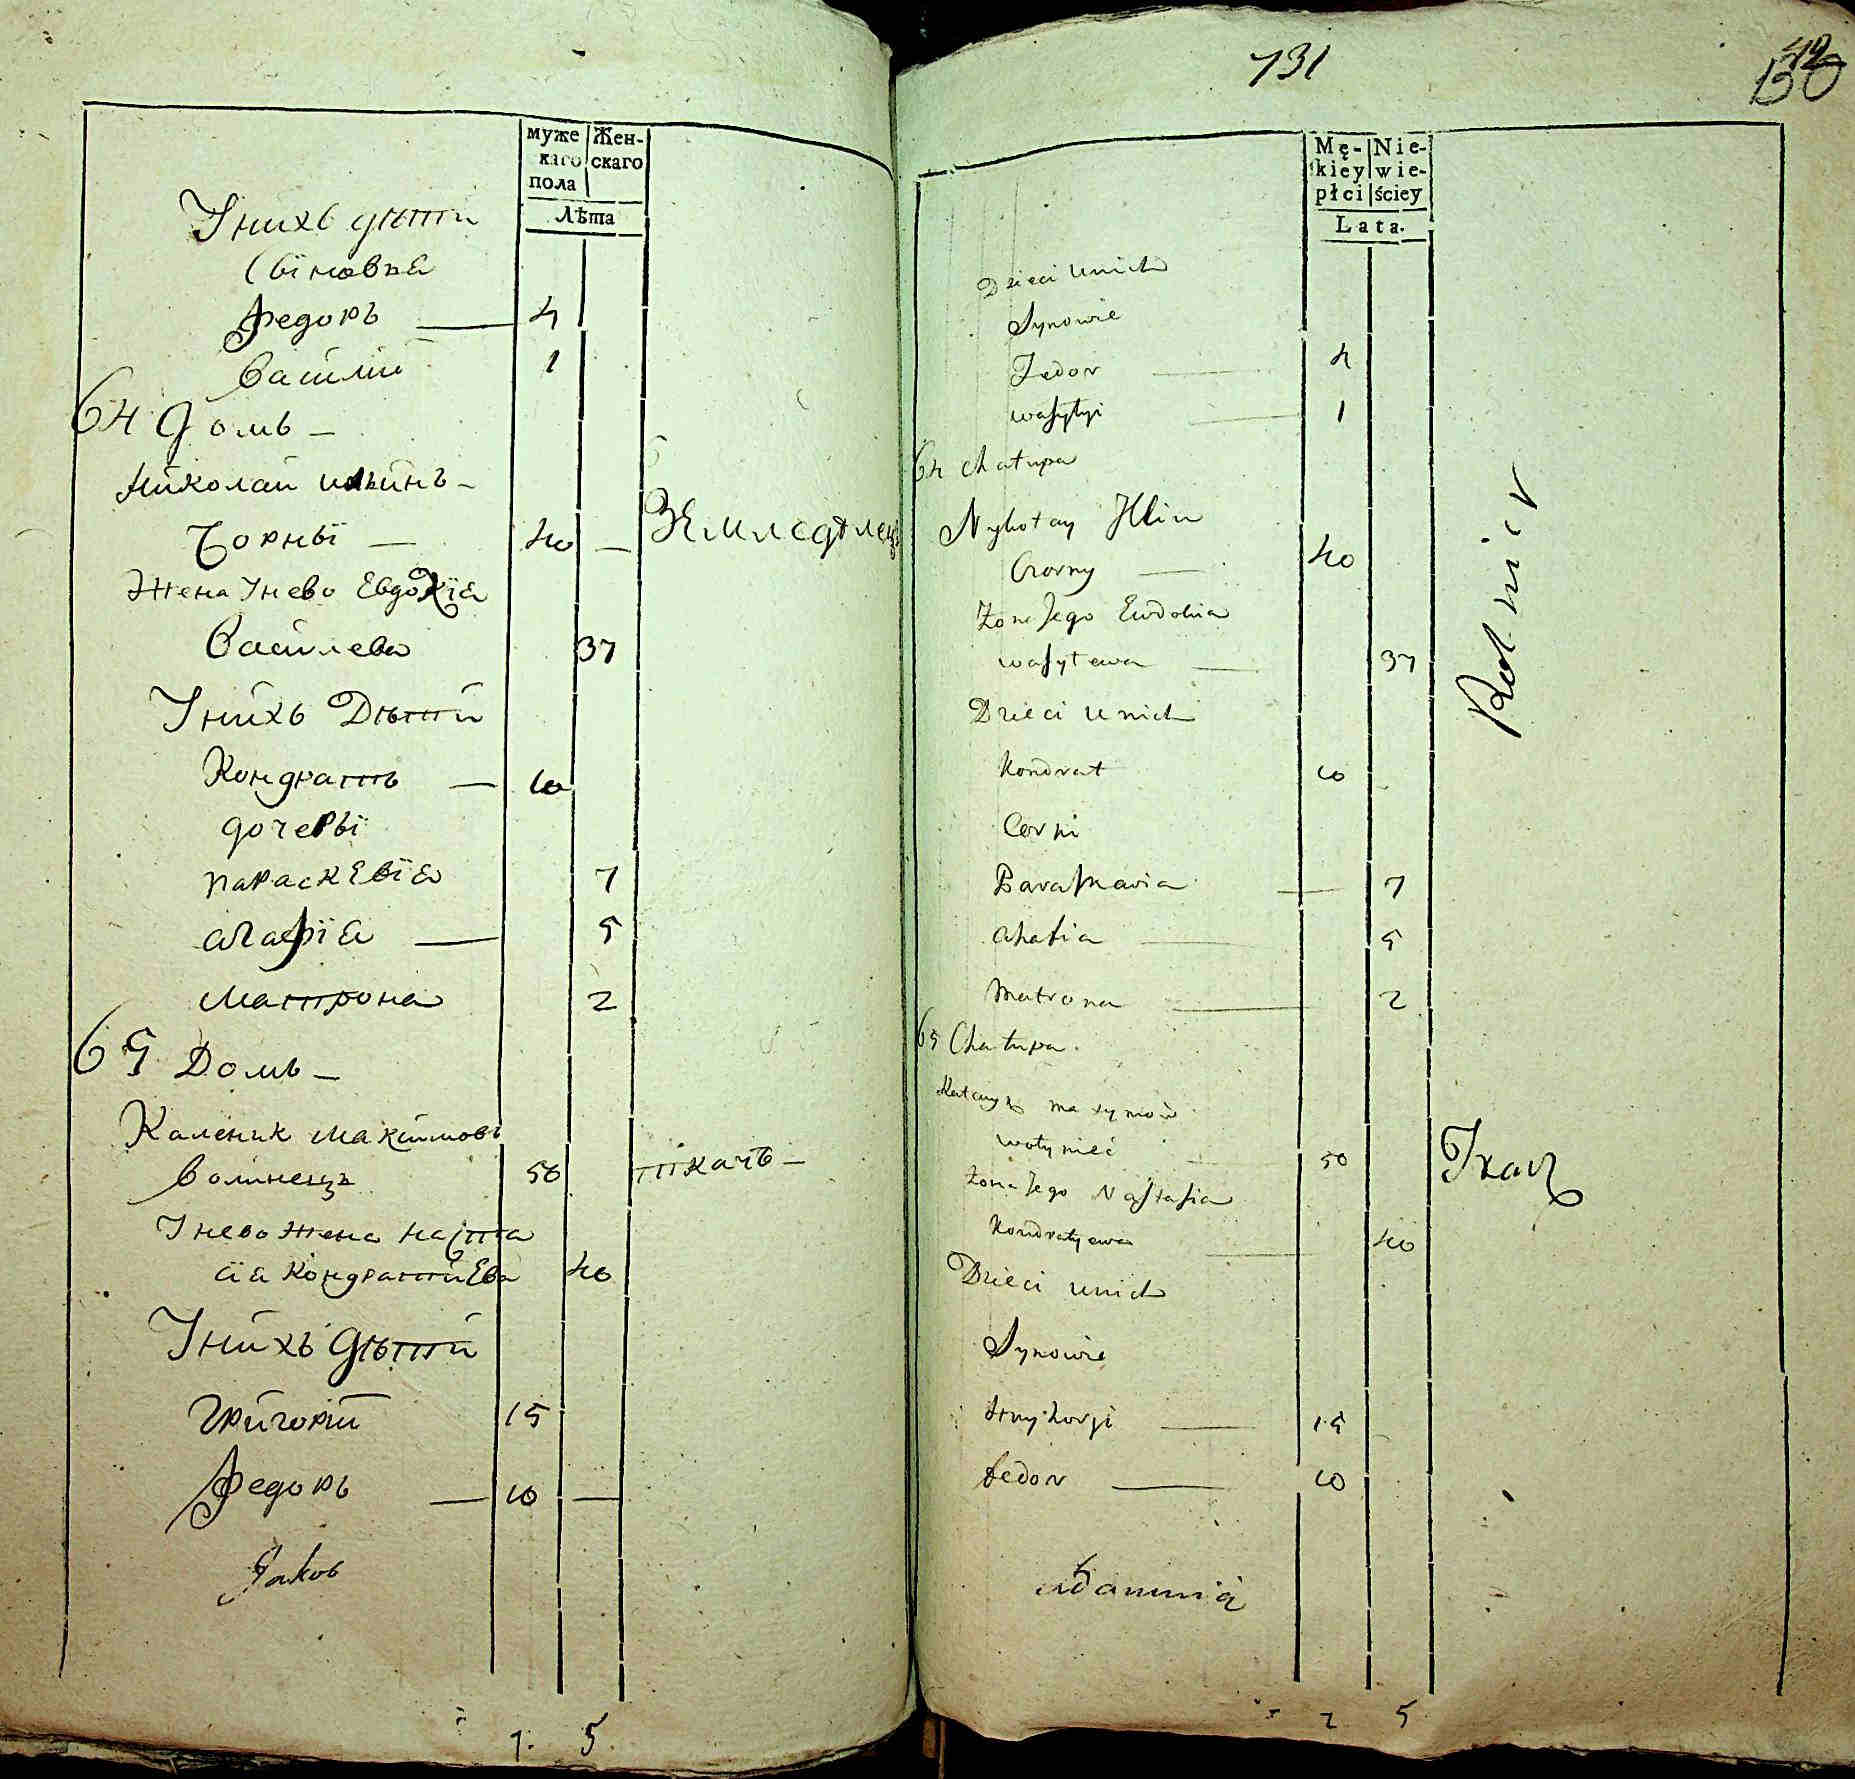 муже
каго
пола
Жен-
скаго
Лѣта
Унихъ дѣти
Сіновья
Федоръ 4
Василій 1
64 Домъ
Николай ильинъ
Чорныі 40 Земледѣлецъ
Жена Унево Евдокія
Василева 37
Унихъ Дѣти
Кондратъ 10
дочеры
параскевія 7
агафія 5
Матрона 2
65 Домъ
Каленик Максимовъ
Волинецъ 50 ткачъ
Унево жена наста
сія Кондратиева 40
Унихъ Дѣти
Григорій 15
Федоръ 10
Яковъ
7. 5
131
Mę-
skiey
płci
Nie-
wie-
ściey
Lata.
Dzieci unich
Synowie
Fedor 4
wasylyi 1
64 chałupa
Nykołay Illin
Czorny 40 Rolnik
Żona Jego Ewdokia
wasylewa 37
Dzieci unich
Kondrat 10
Corki
Paraskavia 7
ahafia 5
Matrona 2
65 Chałupa
maxymow
wołyniec 50 Tkacz
Żona Jego Nastasia
Kondratyewa 40
Dzieci unich
Synowie
Hryhoryi 15
Fedor 10
7 5